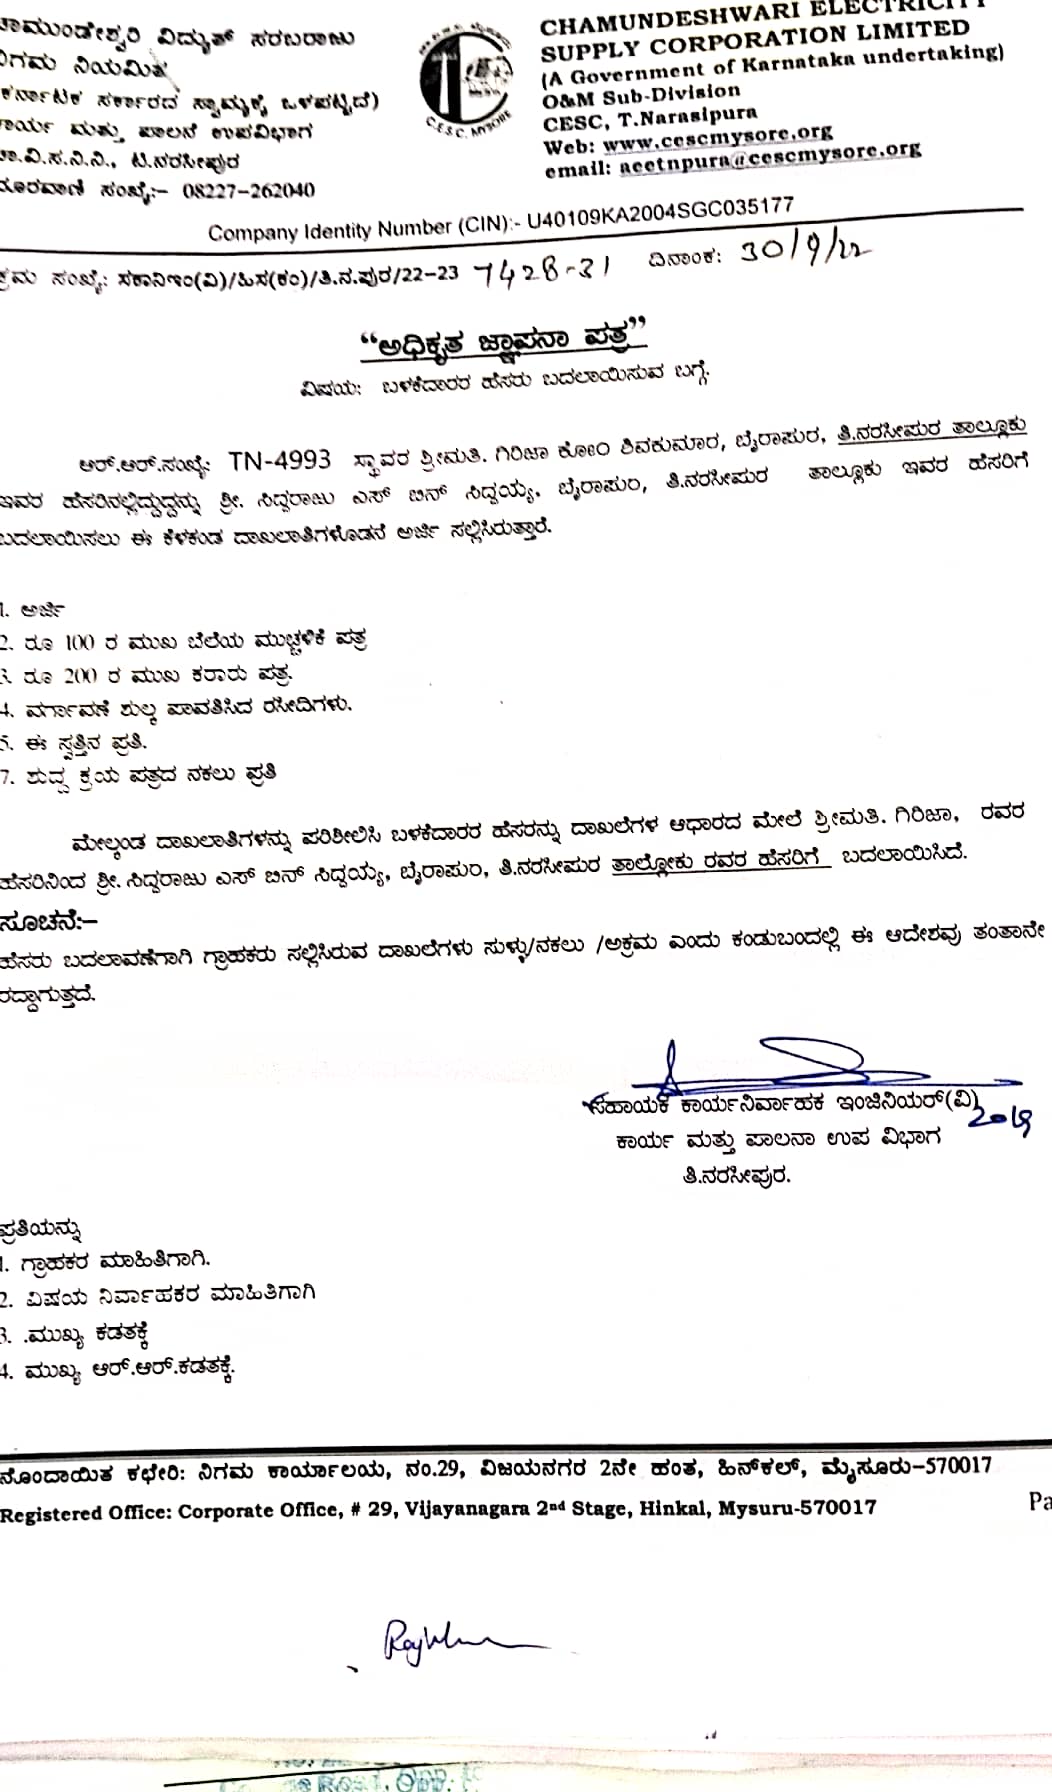 ಚಾಮುಂಡೇಶ್ವರಿ ವಿದ್ಯುತ್ ಸರಬರಾಜು
ನಿಗಮ ನಿಯಮಿತ
ಕರ್ನಾಟಕ ಸರ್ಕಾರದ ಸ್ವಾಮ್ಯಕ್ಕೆ ಒಳಪಟ್ಟಿದೆ)
ಕಾರ್ಯ ಮತ್ತು ಪಾಲನೆ ಉಪವಿಭಾಗ
ಚಾ.ವಿ.ಸ.ನಿ.ನಿ., ಟಿ.ನರಸೀಪುರ
ದೂರವಾಣಿ ಸಂಖ್ಯೆ:– 08227–262040
C.E.S.C. MYSORE
CHAMUNDESHWARI ELECTRICITY
SUPPLY CORPORATION LIMITED
(A Government of Karnataka undertaking)
O&M Sub-Division
CESC, T.Narasipura
Web: www.cescmysore.org
email: aeetnpura@cescmysore.org
Company Identity Number (CIN):- U40109KA2004SGC035177
ಕ್ರಮ ಸಂಖ್ಯೆ: ಸಕಾನಿಇಂ(ವಿ)/ಹಿಸ(ಕಂ)/ತಿ.ನ.ಪುರ/22–23 7428-31 ದಿನಾಂಕ: 30/9/22
“ಅಧಿಕೃತ ಜ್ಞಾಪನಾ ಪತ್ರ”
ವಿಷಯ: ಬಳಕೆದಾರರ ಹೆಸರು ಬದಲಾಯಿಸುವ ಬಗ್ಗೆ.
ಆರ್.ಆರ್.ಸಂಖ್ಯೆ: TN-4993 ಸ್ಥಾವರ ಶ್ರೀಮತಿ. ಗಿರಿಜಾ ಕೋಂ ಶಿವಕುಮಾರ, ಬೈರಾಪುರ, ತಿ.ನರಸೀಪುರ ತಾಲ್ಲೂಕು
ಇವರ ಹೆಸರಿನಲ್ಲಿದ್ದುದ್ದನ್ನು ಶ್ರೀ. ಸಿದ್ದರಾಜು ಎಸ್ ಬಿನ್ ಸಿದ್ದಯ್ಯ, ಬೈರಾಪುರ, ತಿ.ನರಸೀಪುರ ತಾಲ್ಲೂಕು ಇವರ ಹೆಸರಿಗೆ
ಬದಲಾಯಿಸಲು ಈ ಕೆಳಕಂಡ ದಾಖಲಾತಿಗಳೊಡನೆ ಅರ್ಜಿ ಸಲ್ಲಿಸಿರುತ್ತಾರೆ.
1. ಅರ್ಜಿ
2. ರೂ 100 ರ ಮುಖ ಬೆಲೆಯ ಮುಚ್ಚಳಿಕೆ ಪತ್ರ
3. ರೂ 200 ರ ಮುಖ ಕರಾರು ಪತ್ರ.
4. ವರ್ಗಾವಣೆ ಶುಲ್ಕ ಪಾವತಿಸಿದ ರಸೀದಿಗಳು.
5. ಈ ಸ್ವತ್ತಿನ ಪ್ರತಿ.
7. ಶುದ್ದ ಕ್ರಯ ಪತ್ರದ ನಕಲು ಪ್ರತಿ
ಮೇಲ್ಕಂಡ ದಾಖಲಾತಿಗಳನ್ನು ಪರಿಶೀಲಿಸಿ ಬಳಕೆದಾರರ ಹೆಸರನ್ನು ದಾಖಲೆಗಳ ಆಧಾರದ ಮೇಲೆ ಶ್ರೀಮತಿ. ಗಿರಿಜಾ, ರವರ
ಹೆಸರಿನಿಂದ ಶ್ರೀ. ಸಿದ್ದರಾಜು ಎಸ್ ಬಿನ್ ಸಿದ್ದಯ್ಯ, ಬೈರಾಪುರ, ತಿ.ನರಸೀಪುರ ತಾಲ್ಲೋಕು ರವರ ಹೆಸರಿಗೆ ಬದಲಾಯಿಸಿದೆ.
ಸೂಚನೆ:–
ಹೆಸರು ಬದಲಾವಣೆಗಾಗಿ ಗ್ರಾಹಕರು ಸಲ್ಲಿಸಿರುವ ದಾಖಲೆಗಳು ಸುಳ್ಳು/ನಕಲು /ಅಕ್ರಮ ಎಂದು ಕಂಡುಬಂದಲ್ಲಿ ಈ ಆದೇಶವು ತಂತಾನೇ
ರದ್ದಾಗುತ್ತದೆ.
ಸಹಾಯಕ ಕಾರ್ಯನಿರ್ವಾಹಕ ಇಂಜಿನಿಯರ್(ವಿ)
ಕಾರ್ಯ ಮತ್ತು ಪಾಲನಾ ಉಪ ವಿಭಾಗ
ತಿ.ನರಸೀಪುರ.
ಪ್ರತಿಯನ್ನು
1. ಗ್ರಾಹಕರ ಮಾಹಿತಿಗಾಗಿ.
2. ವಿಷಯ ನಿರ್ವಾಹಕರ ಮಾಹಿತಿಗಾಗಿ
3. .ಮುಖ್ಯ ಕಡತಕ್ಕೆ
4. ಮುಖ್ಯ ಆರ್.ಆರ್.ಕಡತಕ್ಕೆ.
ನೊಂದಾಯಿತ ಕಛೇರಿ: ನಿಗಮ ಕಾರ್ಯಾಲಯ, ನಂ.29, ವಿಜಯನಗರ 2ನೇ ಹಂತ, ಹಿನ್‌ಕಲ್, ಮೈಸೂರು–570017
Registered Office: Corporate Office, # 29, Vijayanagara 2nd Stage, Hinkal, Mysuru-570017
Pa
Road, Opp.